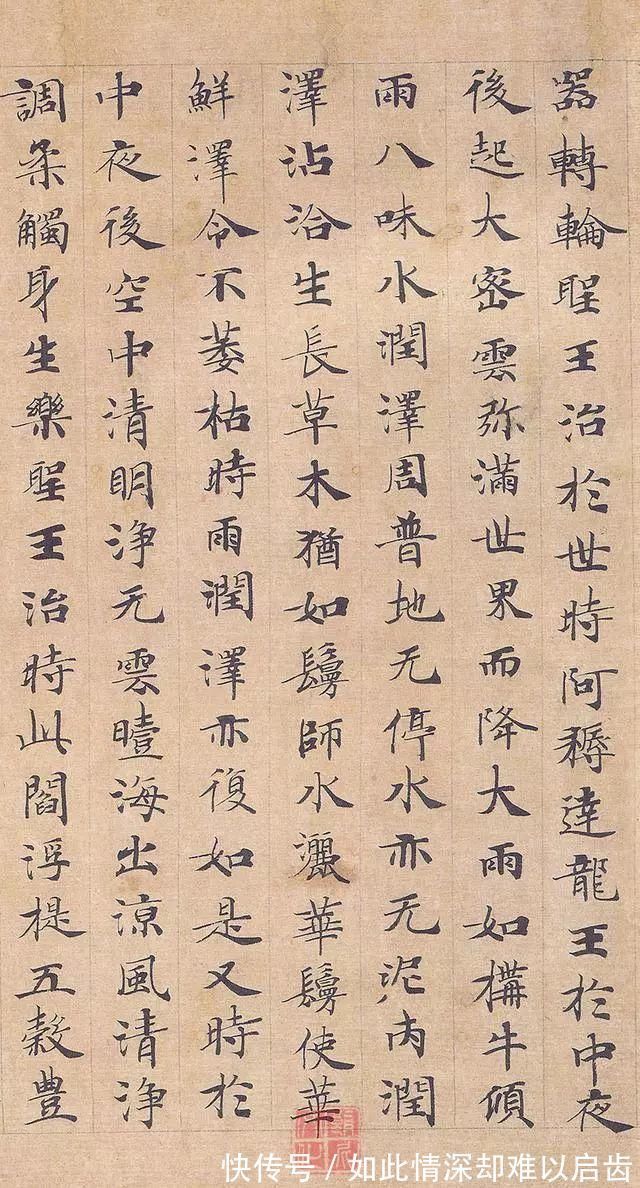 器轉輪聖王治於世時阿耨達龍王於中夜
後起大密雲弥滿世界而降大雨如構牛頃
雨八味水潤澤周普地无停水亦无泥洿潤
澤沾洽生長草木猶如鬘師水灑華鬘使華
鮮澤令不萎枯時雨潤澤亦復如是又時於
中夜後空中清明净无雲曀海出涼風清净
調柔觸身生樂聖王治時此閻浮提五穀豊
快传号/如此情深却难以启齿